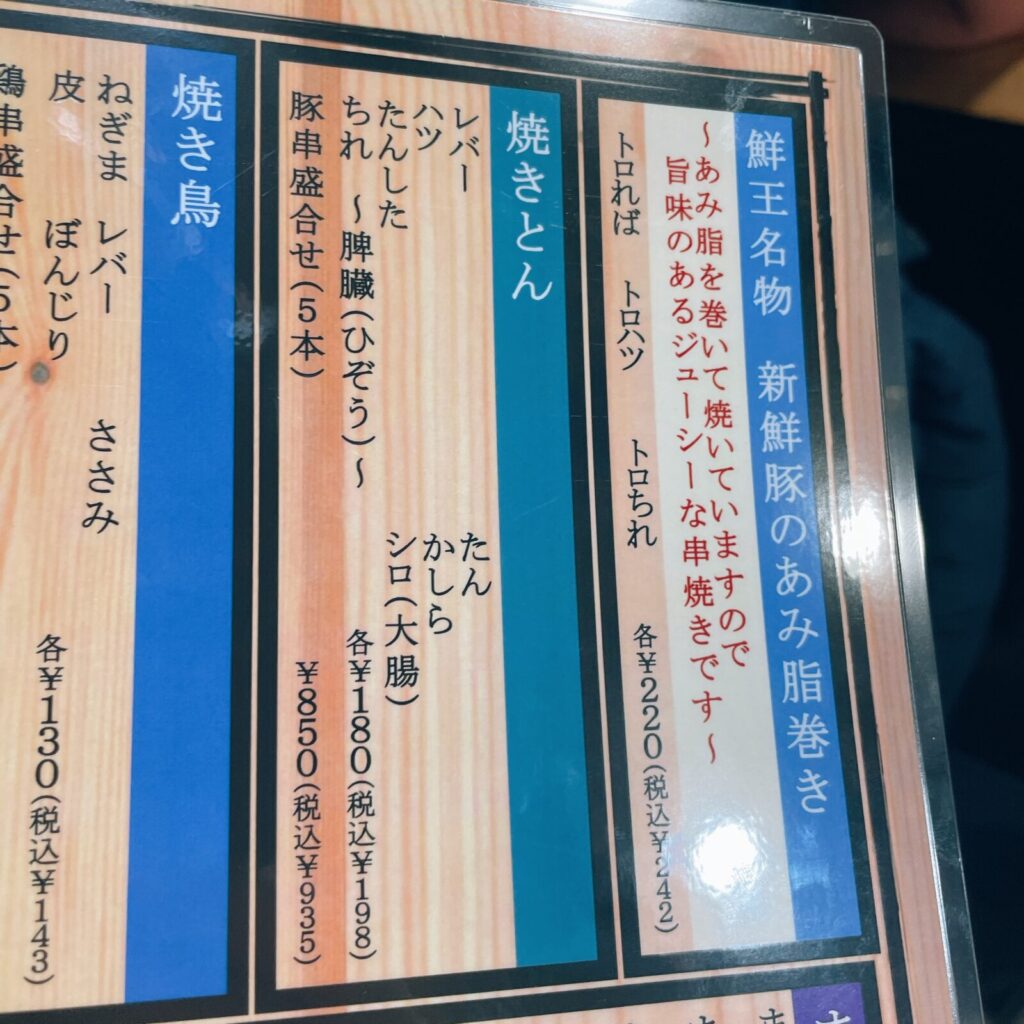 鮮王名物　新鮮豚のあみ脂巻き
～あみ脂を巻いて焼いていますので
旨味のあるジューシーな串焼きです～
トロれば　トロハツ　トロちれ　各¥220(税込¥242)
焼きとん
レバー　たん
ハツ　かしら
たんした　シロ(大腸)
ちれ　～脾臓(ひぞう)～　各¥180(税込¥198)
豚串盛合せ(5本)　¥850(税込¥935)
焼き鳥
ねぎま　レバー　ささみ
皮　ぼんじり　各¥130(税込¥143)
鶏串盛合せ(5本)